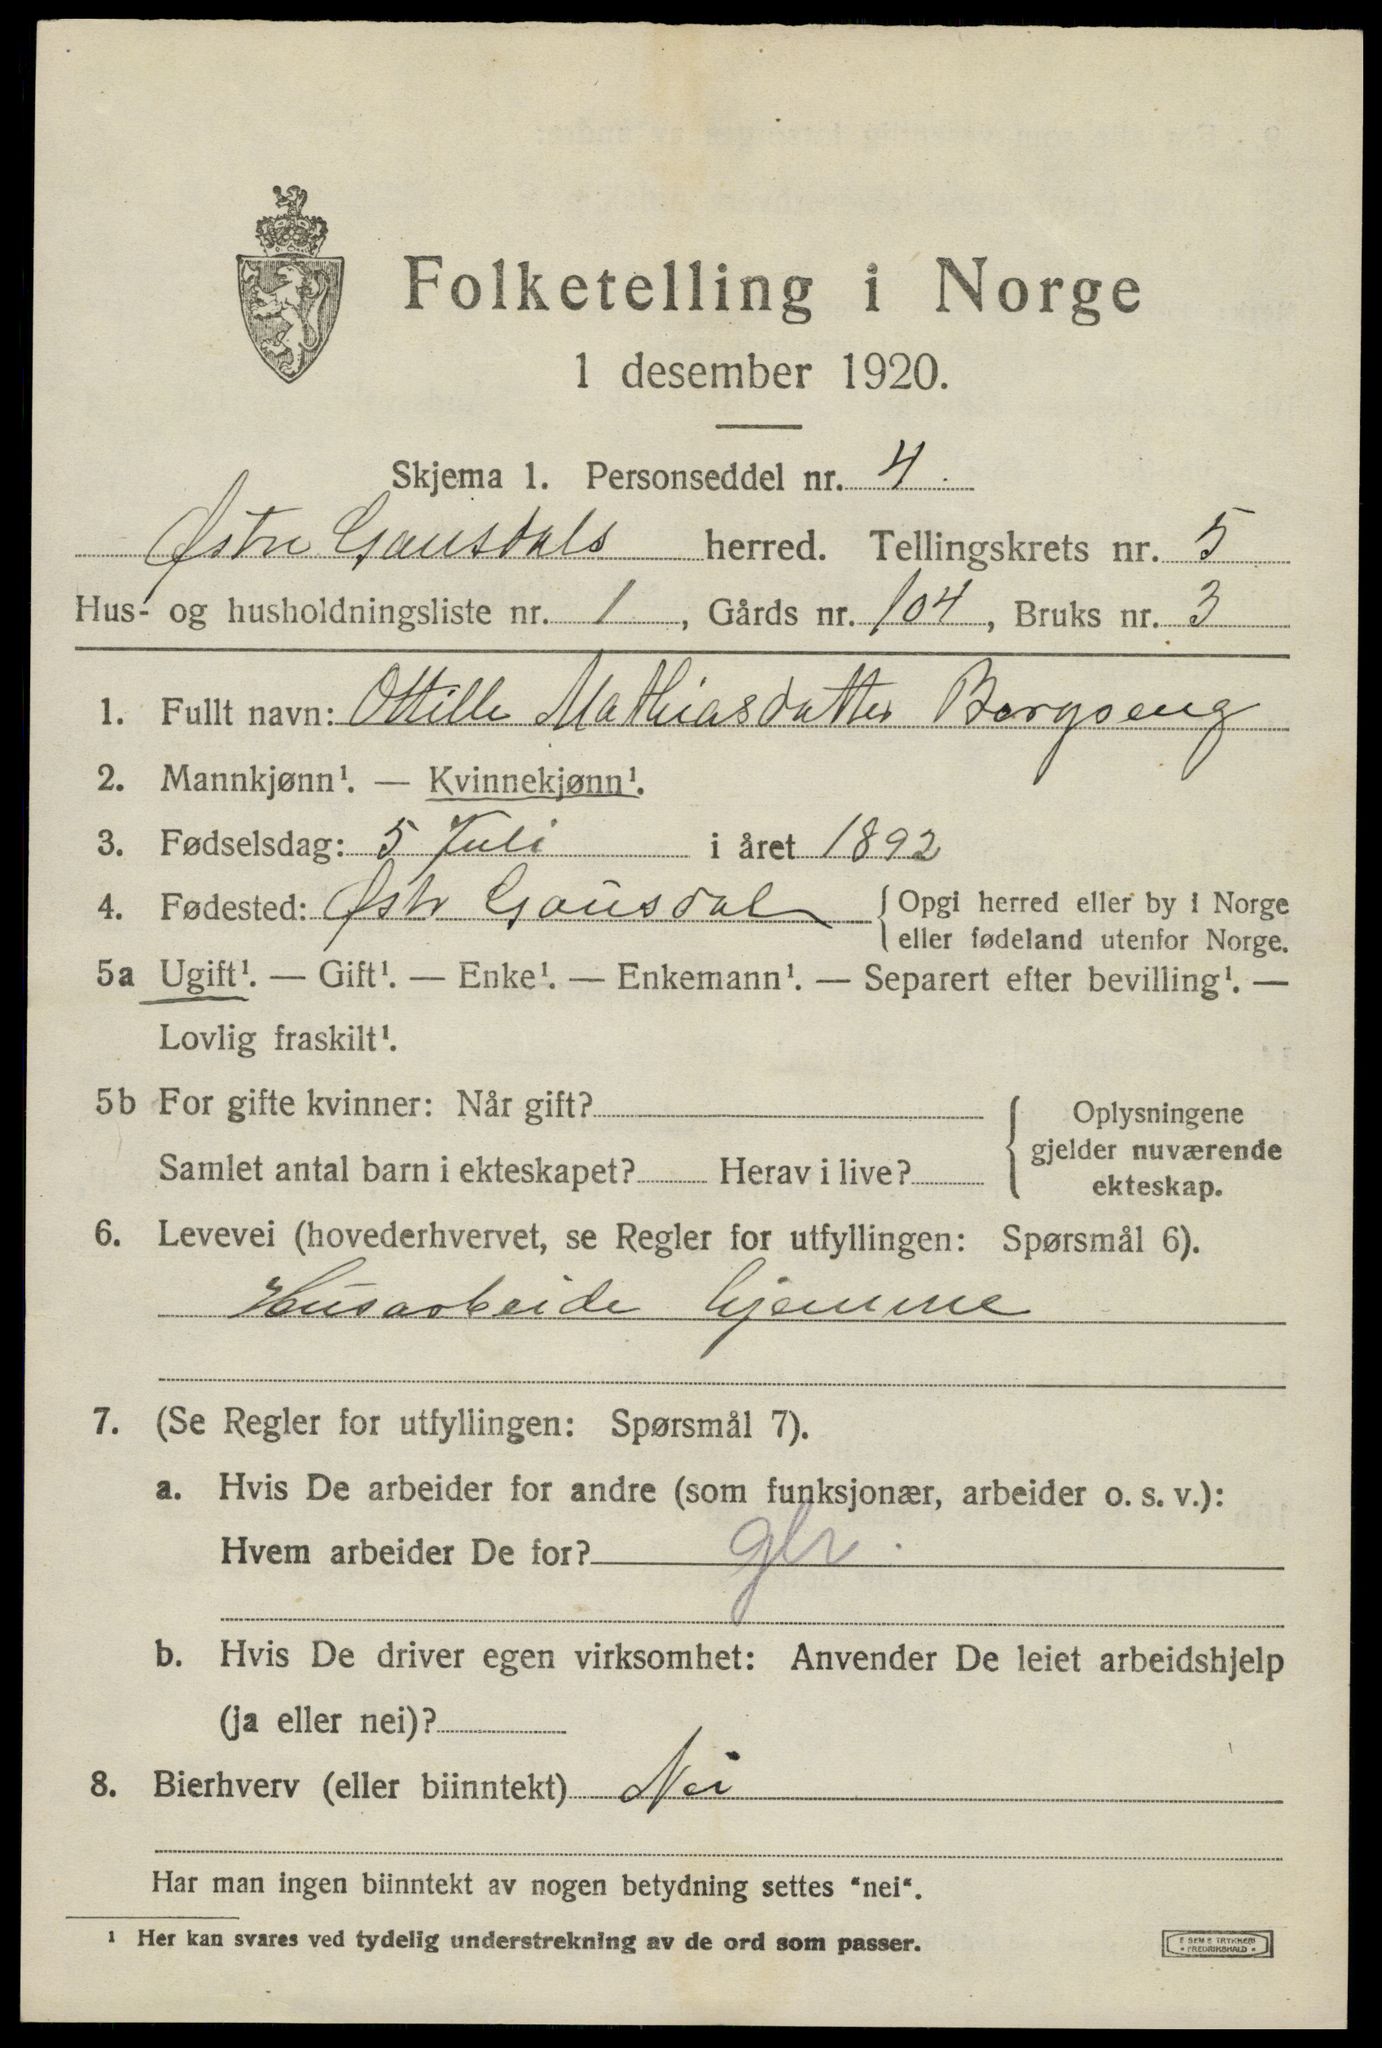 Folketelling i Norge
1 desember 1920.
Skjema 1. Personseddel nr. 4.
Østre Gausdals herred. Tellingskrets nr. 5
Hus- og husholdningsliste nr. 1, Gårds nr. 104, Bruks nr. 3
1. Fullt navn: Ottille Mathiasdatter Bergseng
2. Mannkjønn¹. — Kvinnekjønn¹.
3. Fødselsdag: 5 Juli i året 1892
4. Fødested: Østr Gausdal { Opgi herred eller by i Norge
eller fødeland utenfor Norge.
5a Ugift¹. — Gift¹. — Enke¹. — Enkemann¹. — Separert efter bevilling¹. —
Lovlig fraskilt¹.
5b For gifte kvinner: Når gift?
Samlet antal barn i ekteskapet? Herav i live?
{ Oplysningene
gjelder nuværende
ekteskap.
6. Levevei (hovederhvervet, se Regler for utfyllingen: Spørsmål 6).
Husarbeide hjemme
7. (Se Regler for utfyllingen: Spørsmål 7).
a. Hvis De arbeider for andre (som funksjonær, arbeider o. s. v.):
Hvem arbeider De for?
b. Hvis De driver egen virksomhet: Anvender De leiet arbeidshjelp
(ja eller nei)?
8. Bierhverv (eller biinntekt) Nei
Har man ingen biinntekt av nogen betydning settes "nei".
¹ Her kan svares ved tydelig understrekning av de ord som passer.
E SEM S TRYKKERI
FREDRIKSHALD